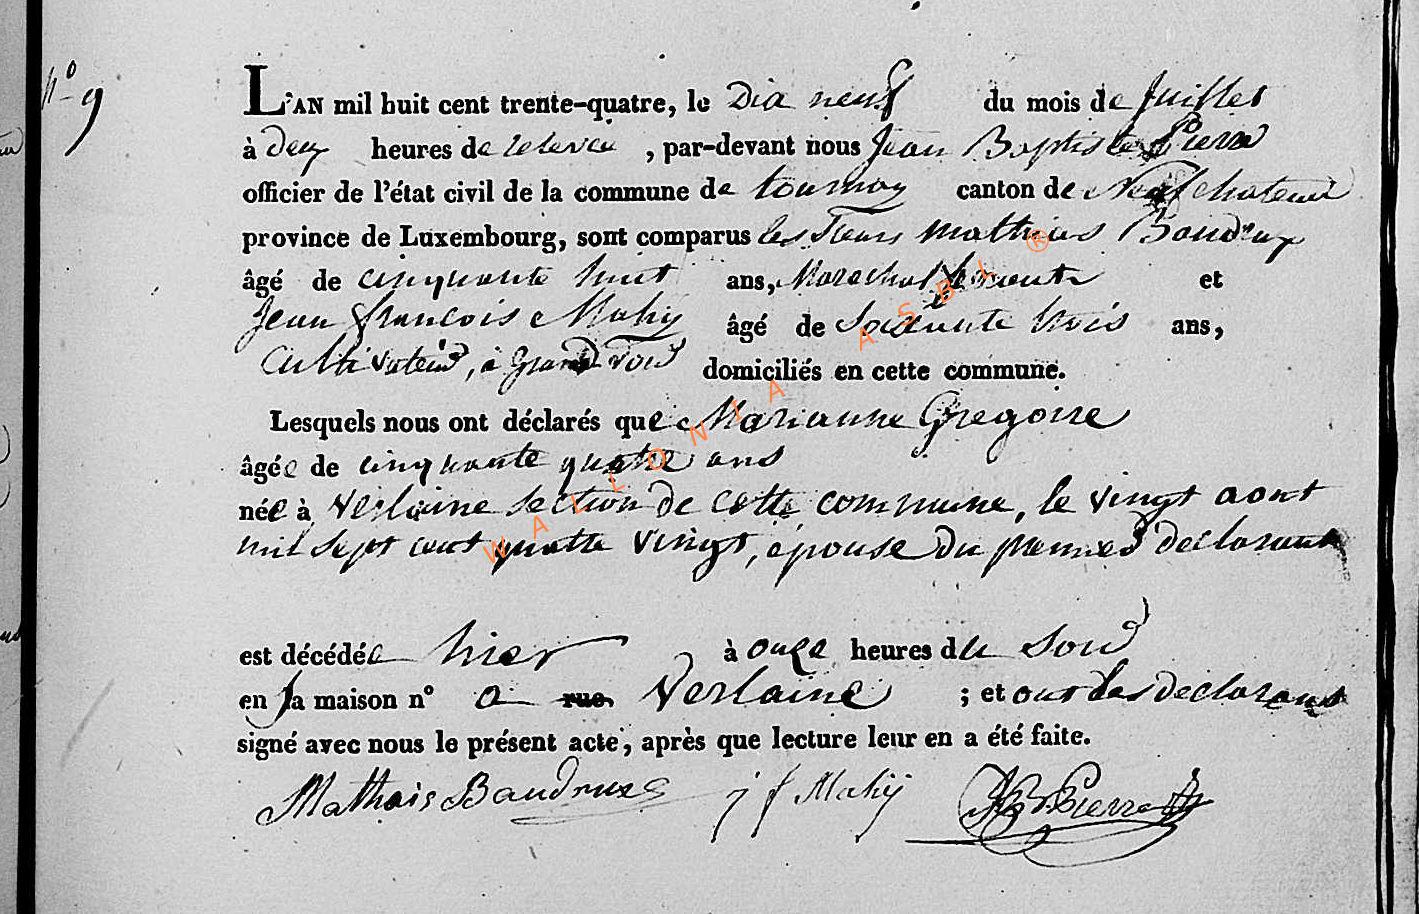 N° 9
L'AN mil huit cent trente-quatre, le Dix neuf du mois de Juillet
à deux heures de relevée, par-devant nous Jean Baptiste Pierre
officier de l'état civil de la commune de tournay canton de Neufchateau
province de Luxembourg, sont comparus les Sieurs Mathias Baudrux
âgé de cinquante huit ans, Marechal ferrant et
Jean françois Mahy âgé de Soixante trois ans,
Cultivateur, à Grand voir domiciliés en cette commune.
Lesquels nous ont déclarés que Marianne Gregoire
âgée de cinquante quatre ans
née à Verlaine section de cette commune, le vingt aout
mil sept cent quatre vingt, épouse du premier declarant
est décédée hier à onze heures du Soir
en sa maison n° a rue Verlaine ; et ont les declarans
signé avec nous le présent acte, après que lecture leur en a été faite.
Mathais Baudrux j f Mahÿ JB Pierre
WALLONIA ASBL ®